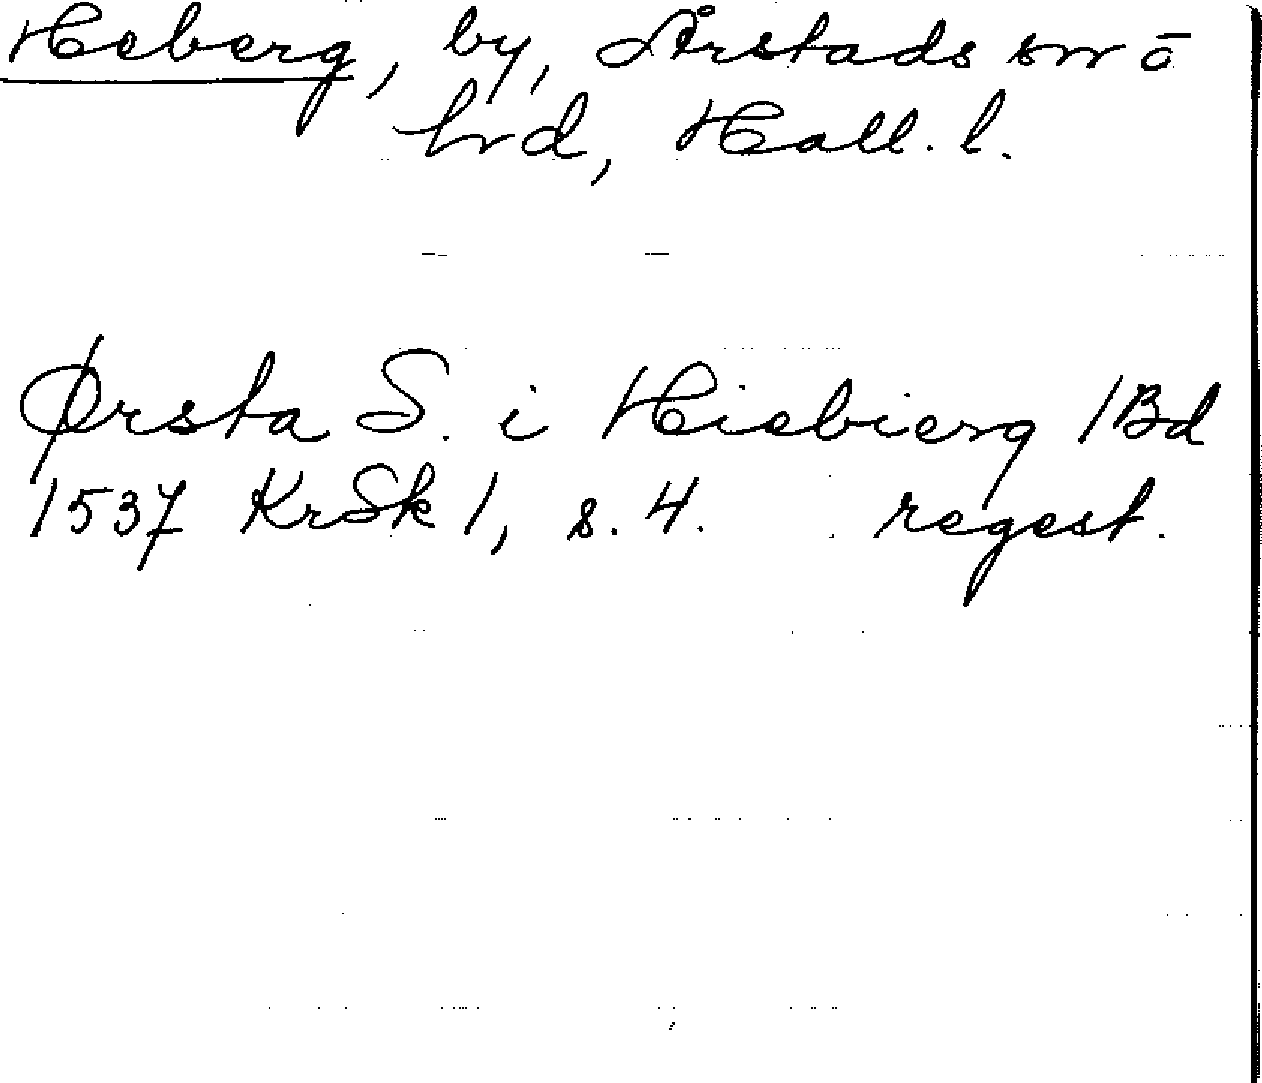 Heberg, by, Årstads sn ō
hd, Hall. l.
Ørsta S. i Hiebierg /Bd
1537 KrSk 1, s. 4. regest.